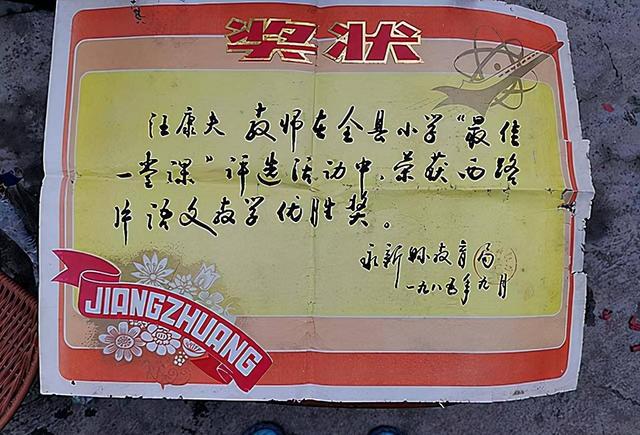 奖状
汪康夫 教师在全县小学“最佳
一堂课”评选活动中,荣获西路
片语文教学优胜奖。
永新县教育局
一九八五年九月
JIANGZHUANG